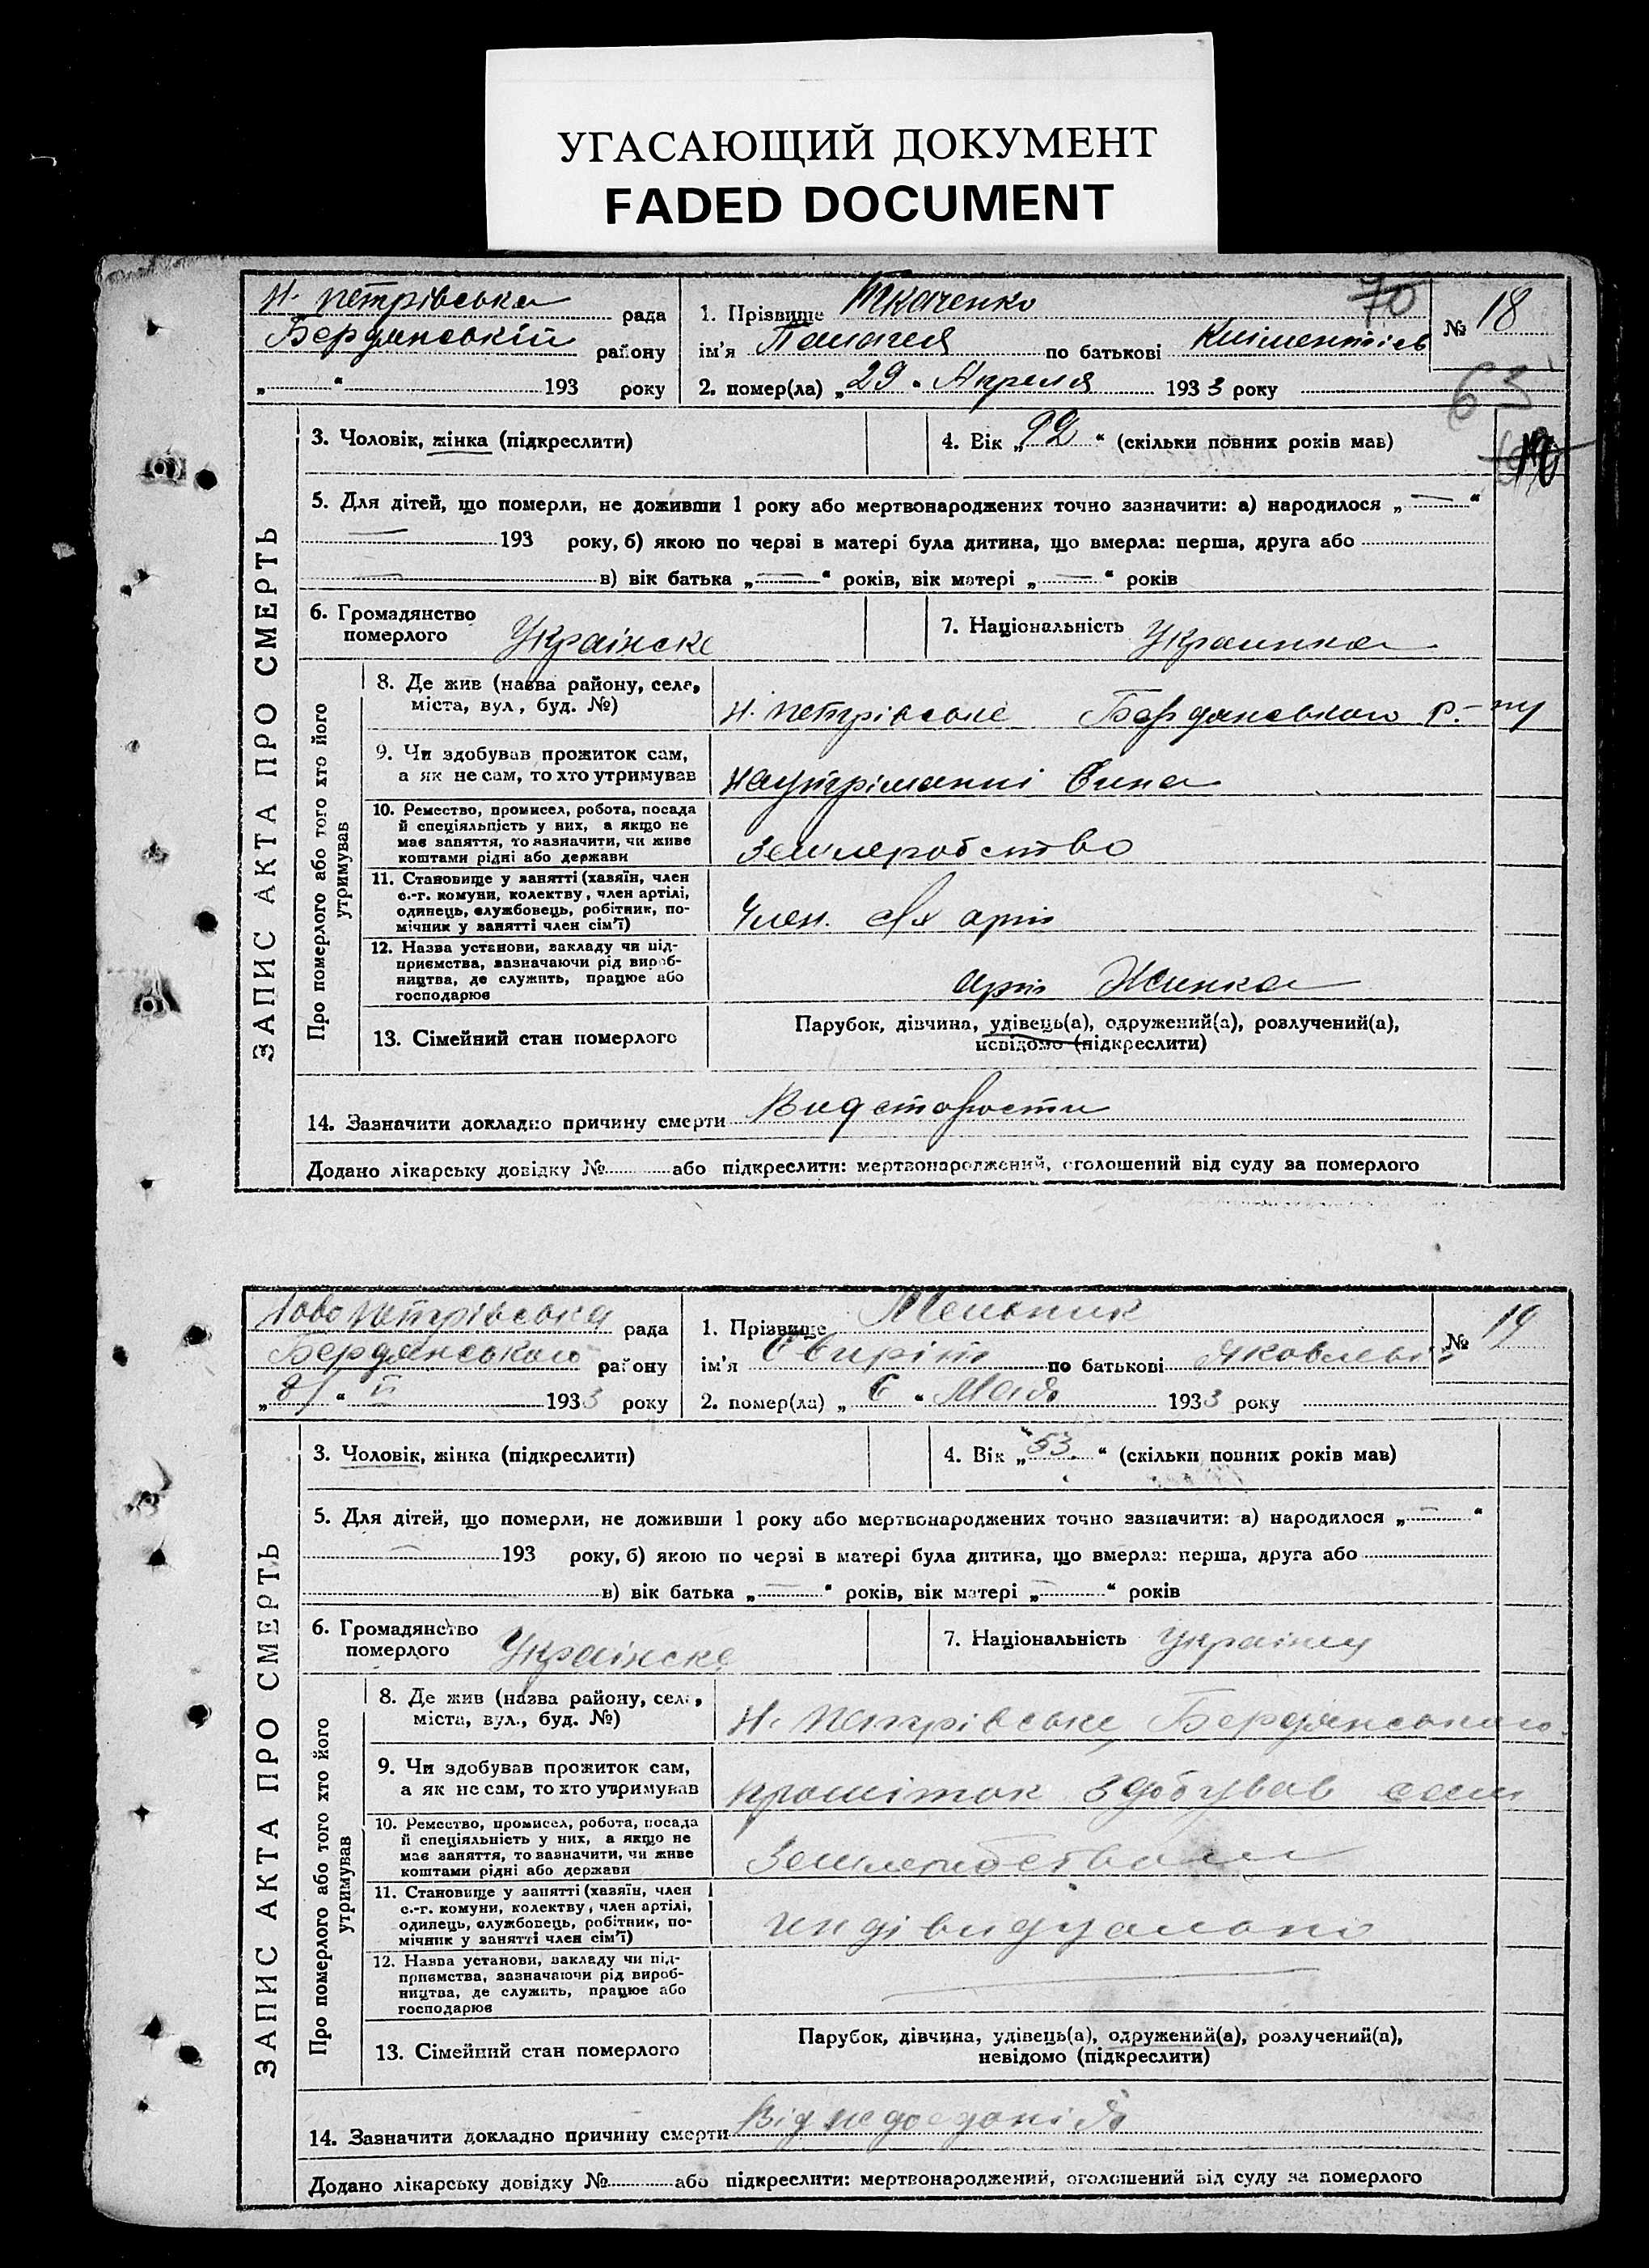 УГАСАЮЩИЙ ДОКУМЕНТ
FADED DOCUMENT
Н. Петрівська рада
Бердянській району
„ “ 193 року
1. Прізвище Ткаченко
70
ім'я Палагея по батькові Кліментіев
2. помер(ла) „29“ Апреля 1933 року
№ 18
63
ЗАПИС АКТА ПРО СМЕРТЬ
3. Чоловік, жінка (підкреслити)
4. Вік „92“ (скільки повних років мав)
5. Для дітей, що померли, не доживши 1 року або мертвонароджених точно зазначити: а) народилося „—“
— 193 року, б) якою по черзі в матері була дитина, що вмерла: перша, друга або
— в) вік батька „—“ років, вік матері „—“ років
6. Громадянство померлого Українске
7. Національність Украинка
Про померлого або того хто його утримував
8. Де жив (назва району, села,
міста, вул., буд. №)
Н. Петрівське Бердянського р-ну
9. Чи здобував прожиток сам,
а як не сам, то хто утримував
Наутріманні Сина
10. Ремество, промисел, робота, посада
й спеціяльність у них, а якщо не
має заняття, то зазначити, чи живе
коштами рідні або держави
Землеробство
11. Становище у занятті (хазяїн, член
с.-г. комуни, колективу, член артілі,
одинець, службовець, робітник, по-
мічник у занятті член сім'ї)
Член. с/х арт
12. Назва установи, закладу чи під-
приємства, зазначаючи рід вироб-
ництва, де служить, працює або
господарює
Арт
13. Сімейний стан померлого
Парубок, дівчина, удівець(а), одружений(а), розлучений(а),
невідомо (підкреслити)
14. Зазначити докладно причину смерти Вид старости
Додано лікарську довідку № або підкреслити: мертвонароджений, оголошений від суду за померлого
Ново Петрівська рада
Бердянського району
1933 року
1. Прізвище Мельник
ім'я Свирид по батькові Яковлевіч
2. помер(ла) „6“ Мая 1933 року
№ 19
ЗАПИС АКТА ПРО СМЕРТЬ
3. Чоловік, жінка (підкреслити)
4. Вік „53“ (скільки повних років мав)
5. Для дітей, що померли, не доживши 1 року або мертвонароджених точно зазначити: а) народилося „—“
— 193 року, б) якою по черзі в матері була дитина, що вмерла: перша, друга або
в) вік батька „—“ років, вік матері „—“ років
6. Громадянство померлого Українске
7. Національність Украінец
Про померлого або того хто його утримував
8. Де жив (назва району, села,
міста, вул., буд. №)
Н. Петрівське, Бердянського
9. Чи здобував прожиток сам,
а як не сам, то хто утримував
прошіток здобував сам
10. Ремество, промисел, робота, посада
й спеціяльність у них, а якщо не
має заняття, то зазначити, чи живе
коштами рідні або держави
Землеробством
11. Становище у занятті (хазяїн, член
с.-г. комуни, колективу, член артілі,
одинець, службовець, робітник, по-
мічник у занятті член сім'ї)
індівидуально
12. Назва установи, закладу чи під-
приємства, зазначаючи рід вироб-
ництва, де служить, працює або
господарює
—
13. Сімейний стан померлого
Парубок, дівчина, удівець(а), одружений(а), розлучений(а),
невідомо (підкреслити)
14. Зазначити докладно причину смерти Від недоеданія
Додано лікарську довідку № або підкреслити: мертвонароджений, оголошений від суду за померлого